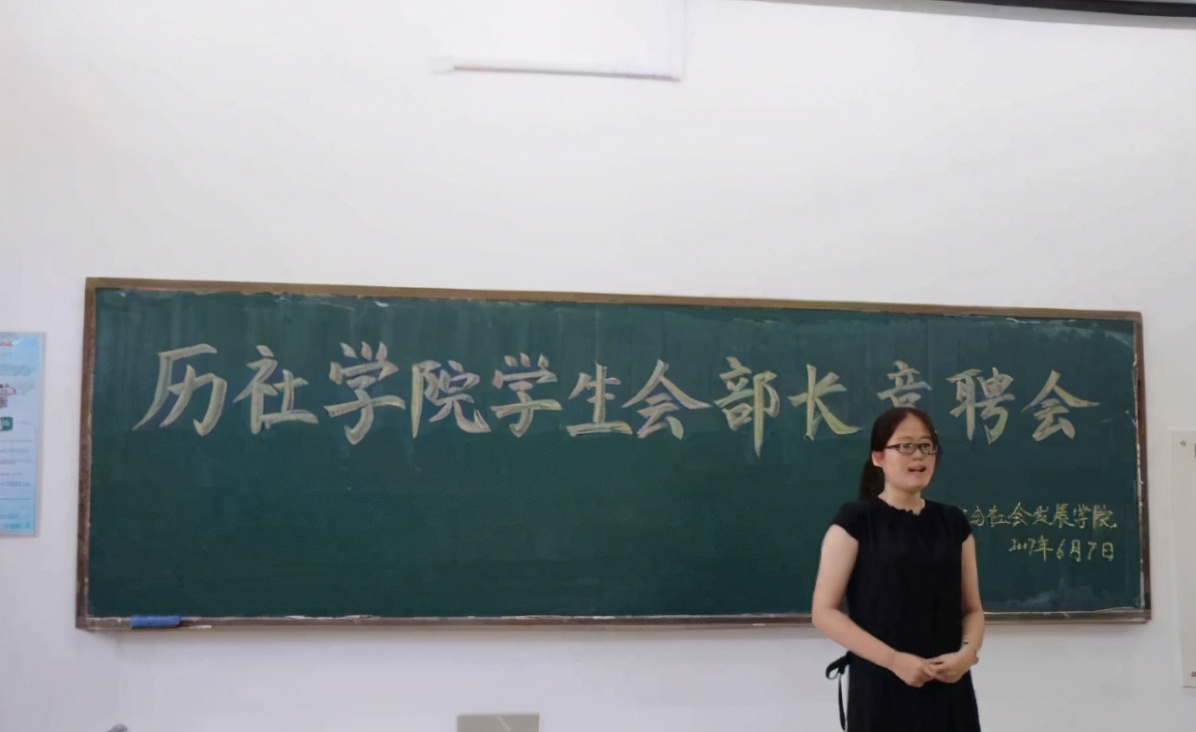 历社学院学生会部长竞聘会
与社会发展学院
2007年6月7日